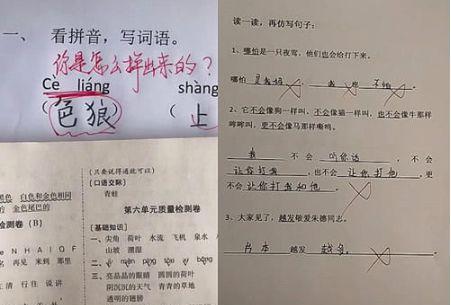 一、看拼音，写词语。
你是怎么拼出来的？
Cè liáng
shàng
(色狼)
(上
(只要说得通就可以)
[口语交际]
青蛙
黑色 白色和金色相间
的 金色尾巴的
检测卷 (B)
第六单元质量检测卷
[基础知识]
e N H A I Q F
名 再见 来到 那里
清 行往 说讲
一、尖角 荷叶 水流 飞机 泉水
山坡 潮湿
三、亮晶晶的眼睛 圆圆的荷叶
阴沉沉的天气 青青的草地
透明的翅膀
读一读，再仿写句子：
1、哪怕是一只夜莺，他们也会给打下来。
哪怕
不怕
2、它不会像狗一样叫、不会像猫一样叫、也不会像牛那样
哞哞叫，更不会像马那样嘶鸣。
我 不会 听你话，不会
让你打我，也不会 让你打，更
不会 让你打我和他。
3、大家见了，越发敬爱朱德同志。
日本 越发 越多。